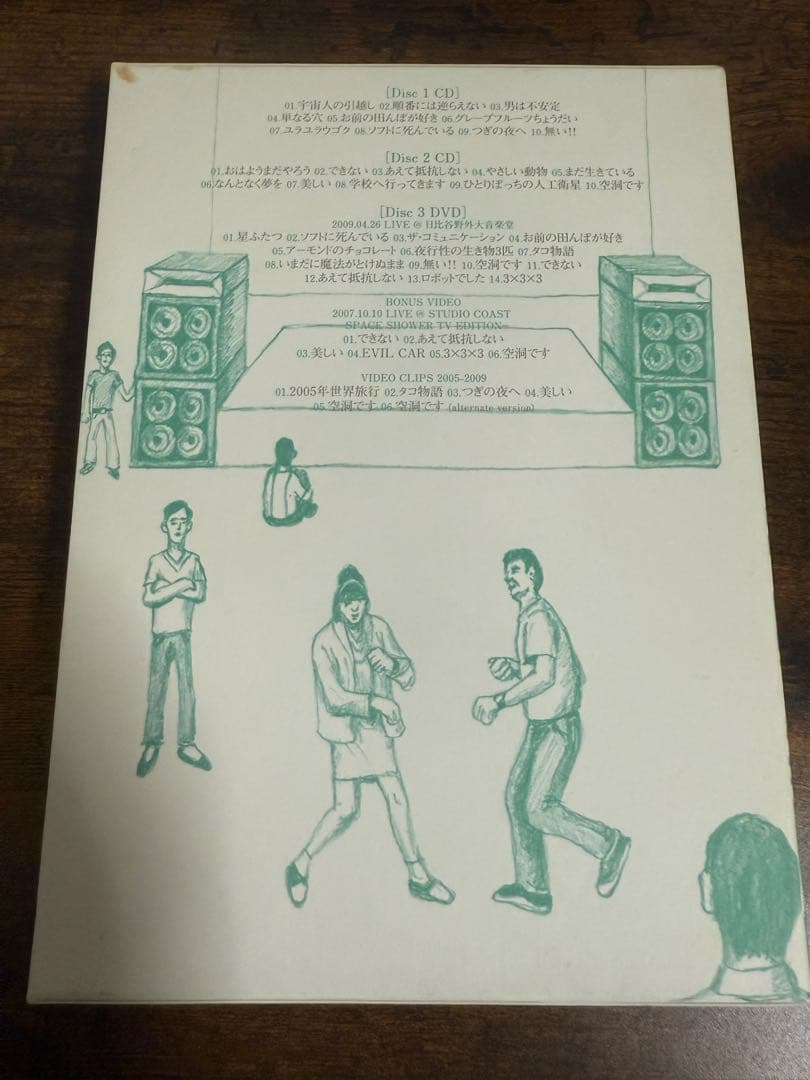 [Disc 1 CD]
01.宇宙人の引越し 02.順番には逆らえない 03.男は不安定
04.単なる穴 05.お前の田んぼが好き 06.グレープフルーツちょうだい
07.ユラユラウゴク 08.ソフトに死んでいる 09.つぎの夜へ 10.無い!!
[Disc 2 CD]
01.おはようまだやろう 02.できない 03.あえて抵抗しない 04.やさしい動物 05.まだ生きている
06.なんとなく夢を 07.美しい 08.学校へ行ってきます 09.ひとりぼっちの人工衛星 10.空洞です
[Disc 3 DVD]
2009.04.26 LIVE @ 日比谷野外大音楽堂
01.星ふたつ 02.ソフトに死んでいる 03.ザ・コミュニケーション 04.お前の田んぼが好き
05.アーモンドのチョコレート 06.夜行性の生き物3匹 07.タコ物語
08.いまだに魔法がとけぬまま 09.無い!! 10.空洞です 11.できない
12.あえて抵抗しない 13.ロボットでした 14.3×3×3
BONUS VIDEO
2007.10.10 LIVE @ STUDIO COAST
-SPACE SHOWER TV EDITION-
01.できない 02.あえて抵抗しない
03.美しい 04.EVIL CAR 05.3×3×3 06.空洞です
VIDEO CLIPS 2005-2009
01.2005年世界旅行 02.タコ物語 03.つぎの夜へ 04.美しい
05.空洞です 06.空洞です (alternate version)